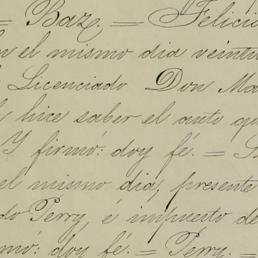 = Baz. = Felicia
n el mismo dia veinti
Licenciado Don Ma
hice saber el auto qu
Y firmó: doy fé. =
el mismo dia, presente
do Perry, é impuesto de
mó: doy fé. = Perry. =